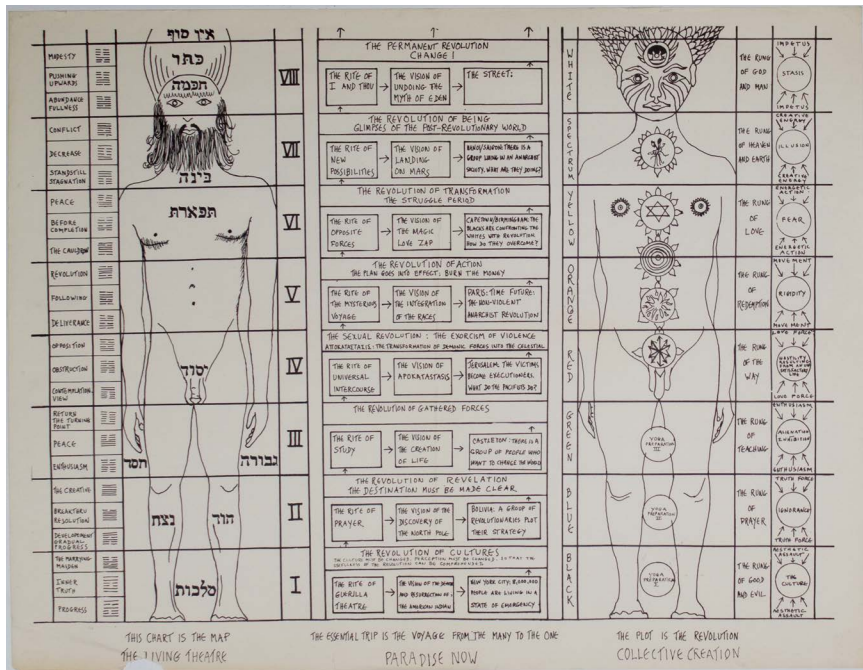 MODESTY
PUSHING
UPWARDS
ABUNDANCE
FULLNESS
CONFLICT
DECREASE
STANDSTILL
STAGNATION
PEACE
BEFORE
COMPLETION
THE CAULDRON
REVOLUTION
FOLLOWING
DELIVERANCE
OPPOSITION
OBSTRUCTION
CONTEMPLATION
VIEW
RETURN
THE TURNING
POINT
PEACE
ENTHUSIASM
THE CREATIVE
BREAKTHRU
RESOLUTION
DEVELOPMENT
GRADUAL
PROGRESS
THE MARRYING
MAIDEN
INNER
TRUTH
PROGRESS
אין סוף
כתר
חכמה
בינה
תפארת
יסוד
חסד
גבורה
נצח
הוד
מלכות
VIII
VII
VI
V
IV
III
II
I
THE PERMANENT REVOLUTION
CHANGE!
THE RITE OF
I AND THOU
THE VISION OF
UNDOING THE
MYTH OF EDEN
THE STREET:
THE REVOLUTION OF BEING
GLIMPSES OF THE POST-REVOLUTIONARY WORLD
THE RITE OF
NEW
POSSIBILITIES
THE VISION OF
LANDING
ON MARS
HANOI/SAIGON: THERE IS A
GROUP LIVING IN AN ANARCHIST
SOCIETY. WHAT ARE THEY DOING?
THE REVOLUTION OF TRANSFORMATION
THE STRUGGLE PERIOD
THE RITE OF
OPPOSITE
FORCES
THE VISION OF
THE MAGIC
LOVE ZAP
CAPETOWN/BIRMINGHAM: THE
BLACKS ARE CONFRONTING THE
WHITES WITH REVOLUTION.
HOW DO THEY OVERCOME?
THE REVOLUTION OF ACTION
THE PLAN GOES INTO EFFECT: BURN THE MONEY
THE RITE OF
THE MYSTERIOUS
VOYAGE
THE VISION OF
THE INTEGRATION
OF THE RACES
PARIS: TIME FUTURE:
THE NON-VIOLENT
ANARCHIST REVOLUTION
THE SEXUAL REVOLUTION: THE EXORCISM OF VIOLENCE
APOKATASTASIS: THE TRANSFORMATION OF DEMONIC FORCES INTO THE CELESTIAL
THE RITE OF
UNIVERSAL
INTERCOURSE
THE VISION OF
APOKATASTASIS
JERUSALEM. THE VICTIMS
BECOME EXECUTIONERS.
WHAT DO THE PACIFISTS DO?
THE REVOLUTION OF GATHERED FORCES
THE RITE OF
STUDY
THE VISION OF
THE CREATION
OF LIFE
CASTLETON: THERE IS A
GROUP OF PEOPLE WHO
WANT TO CHANGE THE WORLD
THE REVOLUTION OF REVELATION
THE DESTINATION MUST BE MADE CLEAR
THE RITE OF
PRAYER
THE VISION OF THE
DISCOVERY OF
THE NORTH POLE
BOLIVIA: A GROUP OF
REVOLUTIONARIES PLOT
THEIR STRATEGY
THE REVOLUTION OF CULTURES
THE CULTURE MUST BE CHANGED. PERCEPTION MUST BE CHANGED. SO THAT THE
THE RITE OF
GUERILLA
THEATRE
THE VISION OF THE DEATH
AND RESURRECTION OF
THE AMERICAN INDIAN
NEW YORK CITY: 8,000,000
PEOPLE ARE LIVING IN A
STATE OF EMERGENCY
WHITE
SPECTRUM
YELLOW
ORANGE
RED
GREEN
BLUE
BLACK
YOGA
PREPARATION
III
YOGA
PREPARATION
II
YOGA
PREPARATION
I
THE RUNG
OF GOD
AND MAN
THE RUNG
OF HEAVEN
AND EARTH
THE RUNG
OF
LOVE
THE RUNG
OF
REDEMPTION
THE RUNG
OF THE
WAY
THE RUNG
OF
TEACHING
THE RUNG
OF
PRAYER
THE RUNG
OF GOOD
AND EVIL
IMPETUS
STASIS
IMPETUS
CREATIVE
ENERGY
ILLUSION
CREATIVE
ENERGY
ENERGETIC
ACTION
FEAR
ENERGETIC
ACTION
MOVEMENT
RIGIDITY
MOVEMENT
LOVE FORCE
HOSTILITY
RESULTING
FROM AN UN
LOVE FORCE
ENTHUSIASM
ALIENATION
ENTHUSIASM
TRUTH FORCE
IGNORANCE
TRUTH FORCE
AESTHETIC
ASSAULT
THE
CULTURE
AESTHETIC
ASSAULT
THIS CHART IS THE MAP
THE ESSENTIAL TRIP IS THE VOYAGE FROM THE MANY TO THE ONE
THE PLOT IS THE REVOLUTION
THE LIVING THEATRE
PARADISE NOW
COLLECTIVE CREATION